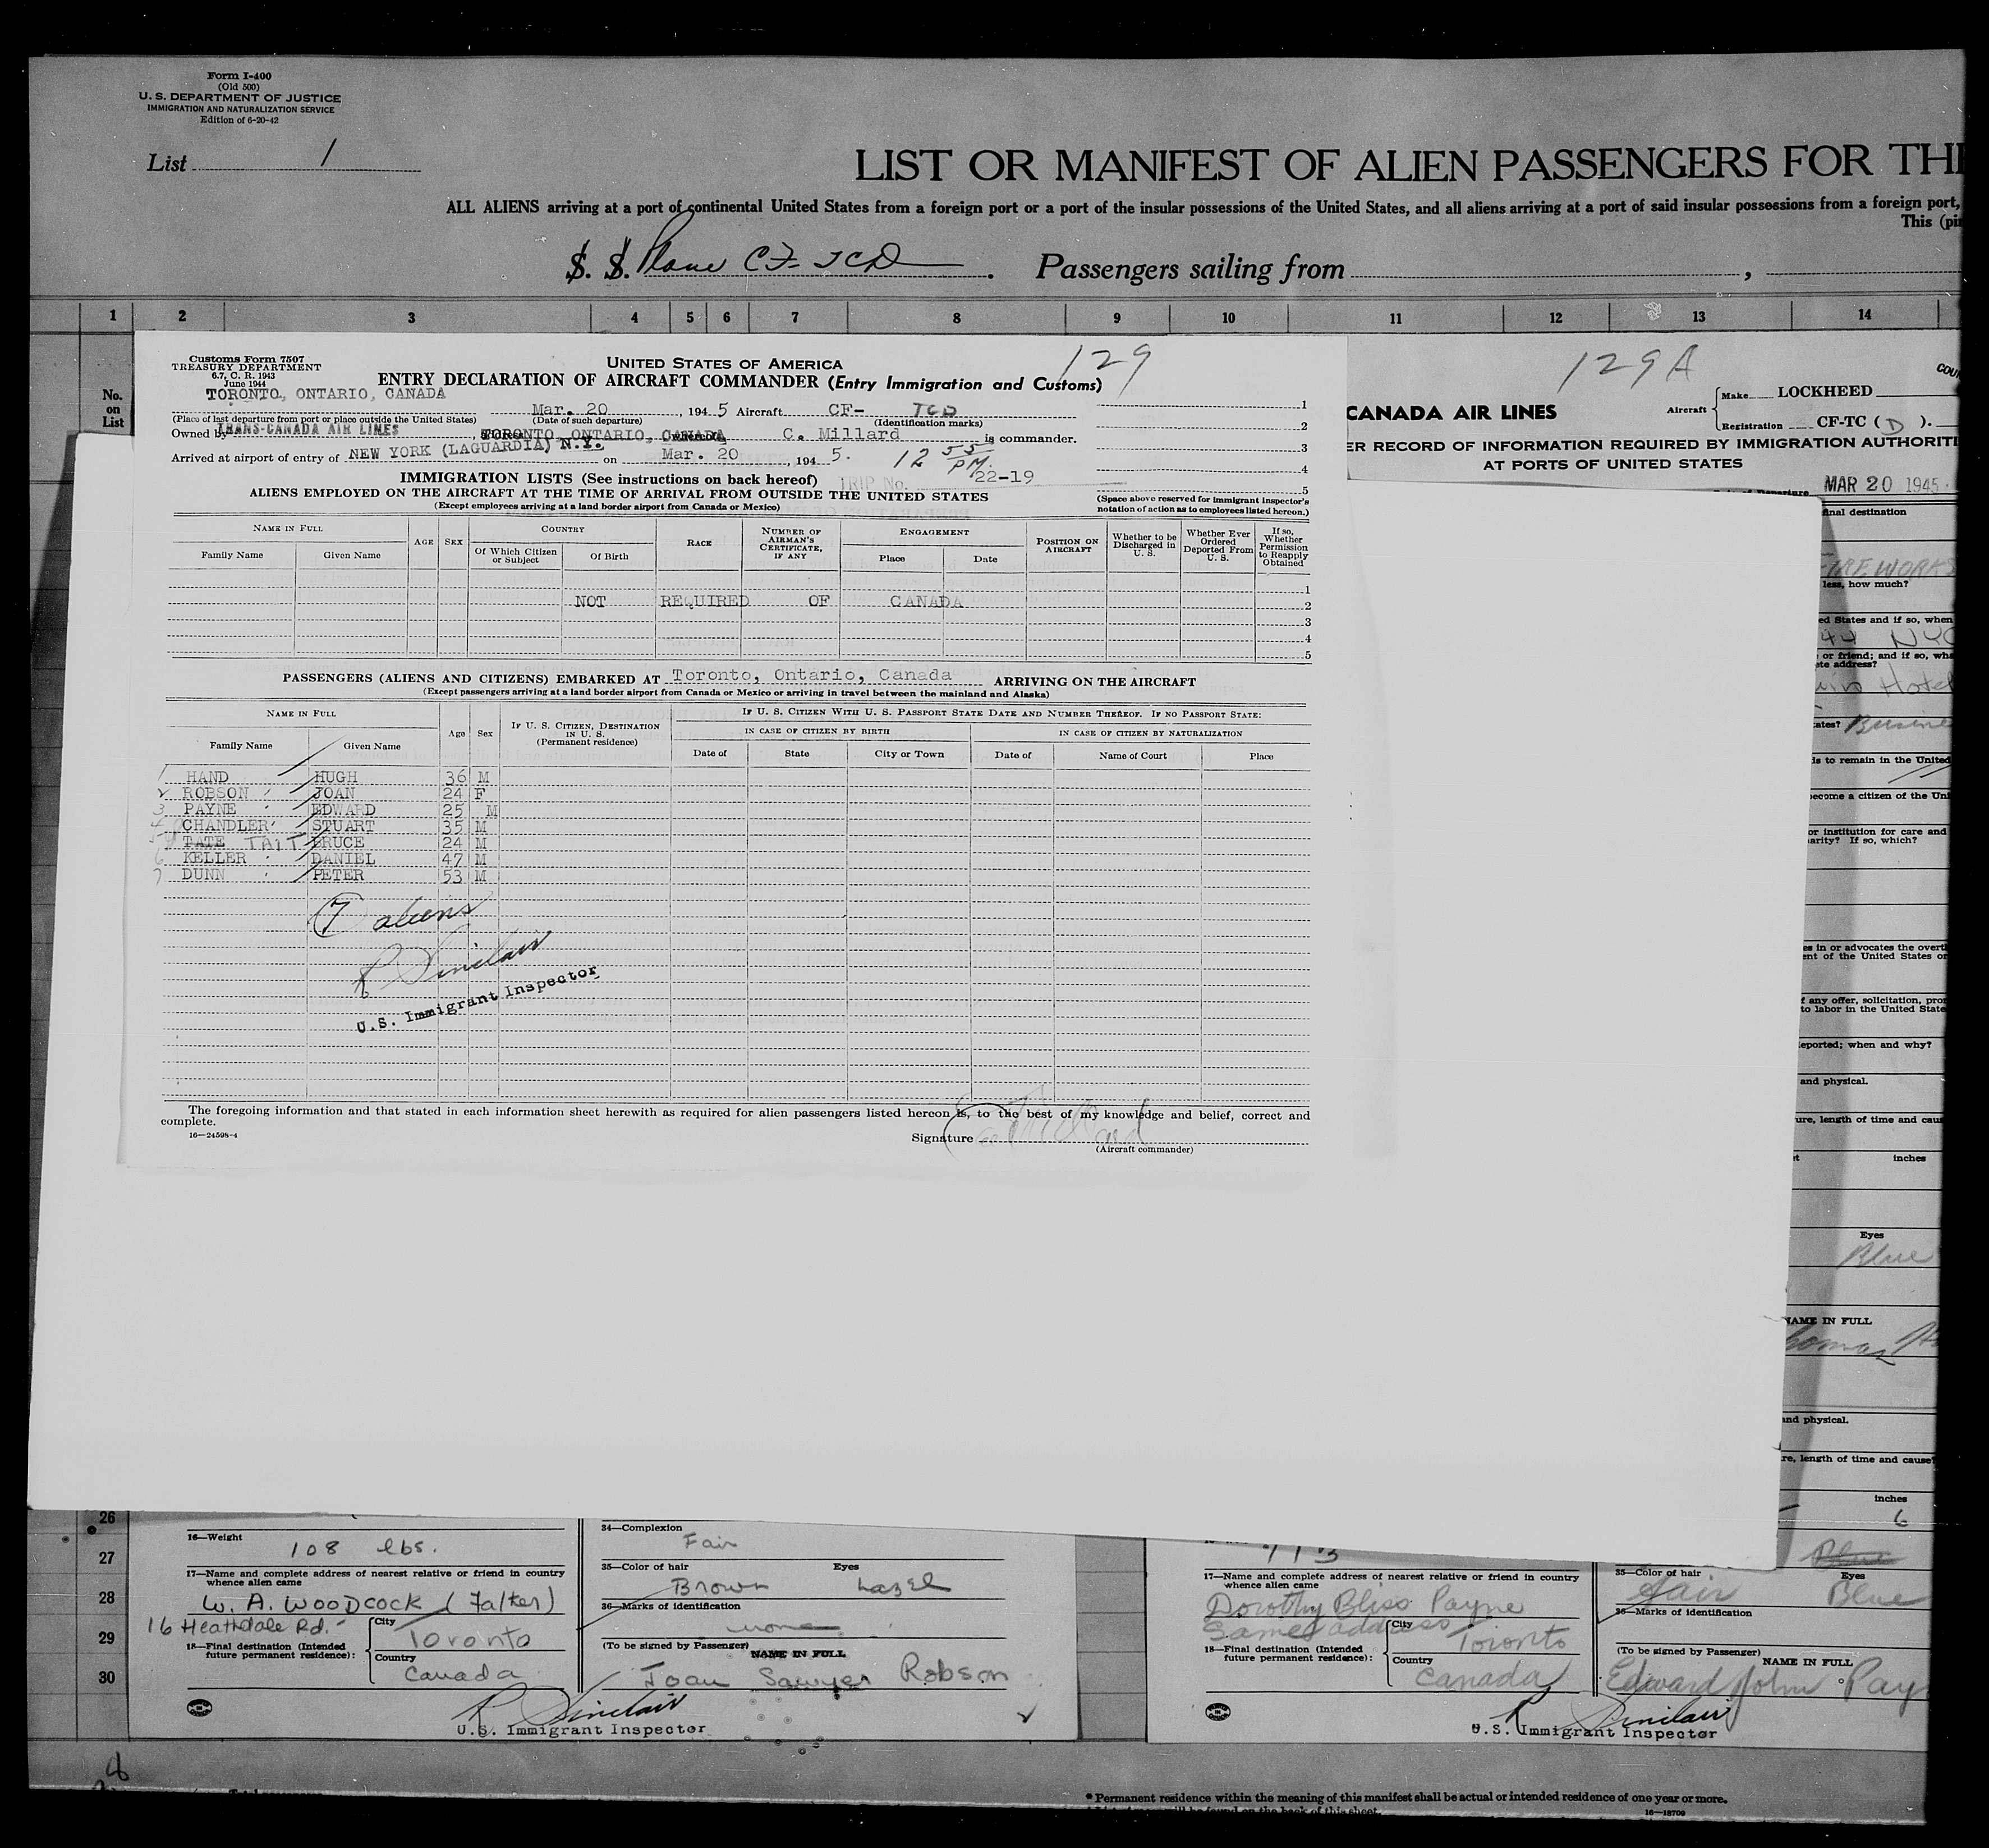 Form I-400
(Old 500)
U. S. DEPARTMENT OF JUSTICE
IMMIGRATION AND NATURALIZATION SERVICE
Edition of 6-20-42
List 1
LIST OR MANIFEST OF ALIEN PASSENGERS FOR TH
ALL ALIENS arriving at a port of continental United States from a foreign port or a port of the insular possessions of the United States, and all aliens arriving at a port of said insular possessions from a foreign port,
This (pi
S. S. Plane CF-TCD . Passengers sailing from ,
1 2 3 4 5 6 7 8 9 10 11 12 13 14
No.
on
List
Customs Form 7507
TREASURY DEPARTMENT
6.7, C. R. 1943
June 1944
UNITED STATES OF AMERICA
129
ENTRY DECLARATION OF AIRCRAFT COMMANDER (Entry Immigration and Customs)
TORONTO, ONTARIO, CANADA
Mar. 20, 1945 Aircraft CF- TCD
(Place of last departure from port or place outside the United States) (Date of such departure) (Identification marks)
Owned by TRANS-CANADA AIR LINES, TORONTO, ONTARIO, CANADA C. Millard is commander.
Arrived at airport of entry of NEW YORK (LAGUARDIA) N.Y. on Mar. 20, 1945. 12 55 PM.
1
2
3
4
5
IMMIGRATION LISTS (See instructions on back hereof) TRIP No. 22-19
ALIENS EMPLOYED ON THE AIRCRAFT AT THE TIME OF ARRIVAL FROM OUTSIDE THE UNITED STATES
(Except employees arriving at a land border airport from Canada or Mexico)
(Space above reserved for immigrant inspector's
notation of action as to employees listed hereon.)
NAME IN FULL
Family Name Given Name
AGE SEX
COUNTRY
Of Which Citizen or Subject
Of Birth
RACE
NUMBER OF AIRMAN'S CERTIFICATE, IF ANY
ENGAGEMENT
Place Date
POSITION ON AIRCRAFT
Whether to be Discharged in U. S.
Whether Ever Ordered Deported From U. S.
If so, Whether Permission to Reapply Obtained
1
NOT REQUIRED OF CANADA 2
3
4
5
PASSENGERS (ALIENS AND CITIZENS) EMBARKED AT Toronto, Ontario, Canada ARRIVING ON THE AIRCRAFT
(Except passengers arriving at a land border airport from Canada or Mexico or arriving in travel between the mainland and Alaska)
NAME IN FULL
Family Name Given Name
Age Sex
IF U. S. CITIZEN, DESTINATION IN U. S. (Permanent residence)
IF U. S. CITIZEN WITH U. S. PASSPORT STATE DATE AND NUMBER THEREOF. IF NO PASSPORT STATE:
IN CASE OF CITIZEN BY BIRTH IN CASE OF CITIZEN BY NATURALIZATION
Date of State City or Town Date of Name of Court Place
1 HAND HUGH 36 M
2 ROBSON JOAN 24 F
3 PAYNE EDWARD 25 M
4 CHANDLER STUART 35 M
5 TATE TAIT BRUCE 24 M
6 KELLER DANIEL 47 M
7 DUNN PETER 53 M
7 aliens
R Sinclair
U.S. Immigrant Inspector
The foregoing information and that stated in each information sheet herewith as required for alien passengers listed hereon is, to the best of my knowledge and belief, correct and
complete.
16—24598-4
Signature Millard
(Aircraft commander)
129A
COU
CANADA AIR LINES
Aircraft
Make LOCKHEED
Registration CF-TC (D).
ER RECORD OF INFORMATION REQUIRED BY IMMIGRATION AUTHORITI
AT PORTS OF UNITED STATES
MAR 20 1945
final destination
FIREWORKS
less, how much?
ed States and if so, when
44 NYC
or friend; and if so, wha
ete address?
Hotel
ates? Busine
is to remain in the United
become a citizen of the Uni
or institution for care and
arity? If so, which?
es in or advocates the overt
ent of the United States or
f any offer, solicitation, pro
to labor in the United State
eported; when and why?
and physical.
ure, length of time and cau
inches
Eyes
Blue
NAME IN FULL
homas
and physical.
re, length of time and cause?
inches
6
Blue
26
27
28
29
30
16—Weight
108 lbs.
17—Name and complete address of nearest relative or friend in country
whence alien came
W. A. WOODCOCK (Father)
16 Heathdale Rd.
18—Final destination (Intended
future permanent residence):
City
Toronto
Country
Canada
34—Complexion
Fair
35—Color of hair Eyes
Brown hazel
36—Marks of identification
none
(To be signed by Passenger)
NAME IN FULL
Joan Sawyer Robson
R Sinclair
U.S. Immigrant Inspector
17—Name and complete address of nearest relative or friend in country
whence alien came
Dorothy Bliss Payne
Same address
18—Final destination (Intended
future permanent residence):
City
Toronto
Country
Canada
35—Color of hair Eyes
fair Blue
36—Marks of identification
(To be signed by Passenger)
NAME IN FULL
Edward John Pay
R Sinclair
U.S. Immigrant Inspector
* Permanent residence within the meaning of this manifest shall be actual or intended residence of one year or more.
16—18700